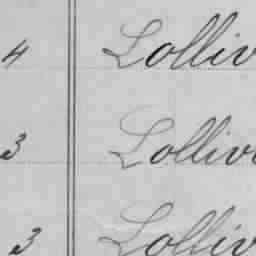 4 Lolliv
3 Lollivi
3 Lolliv